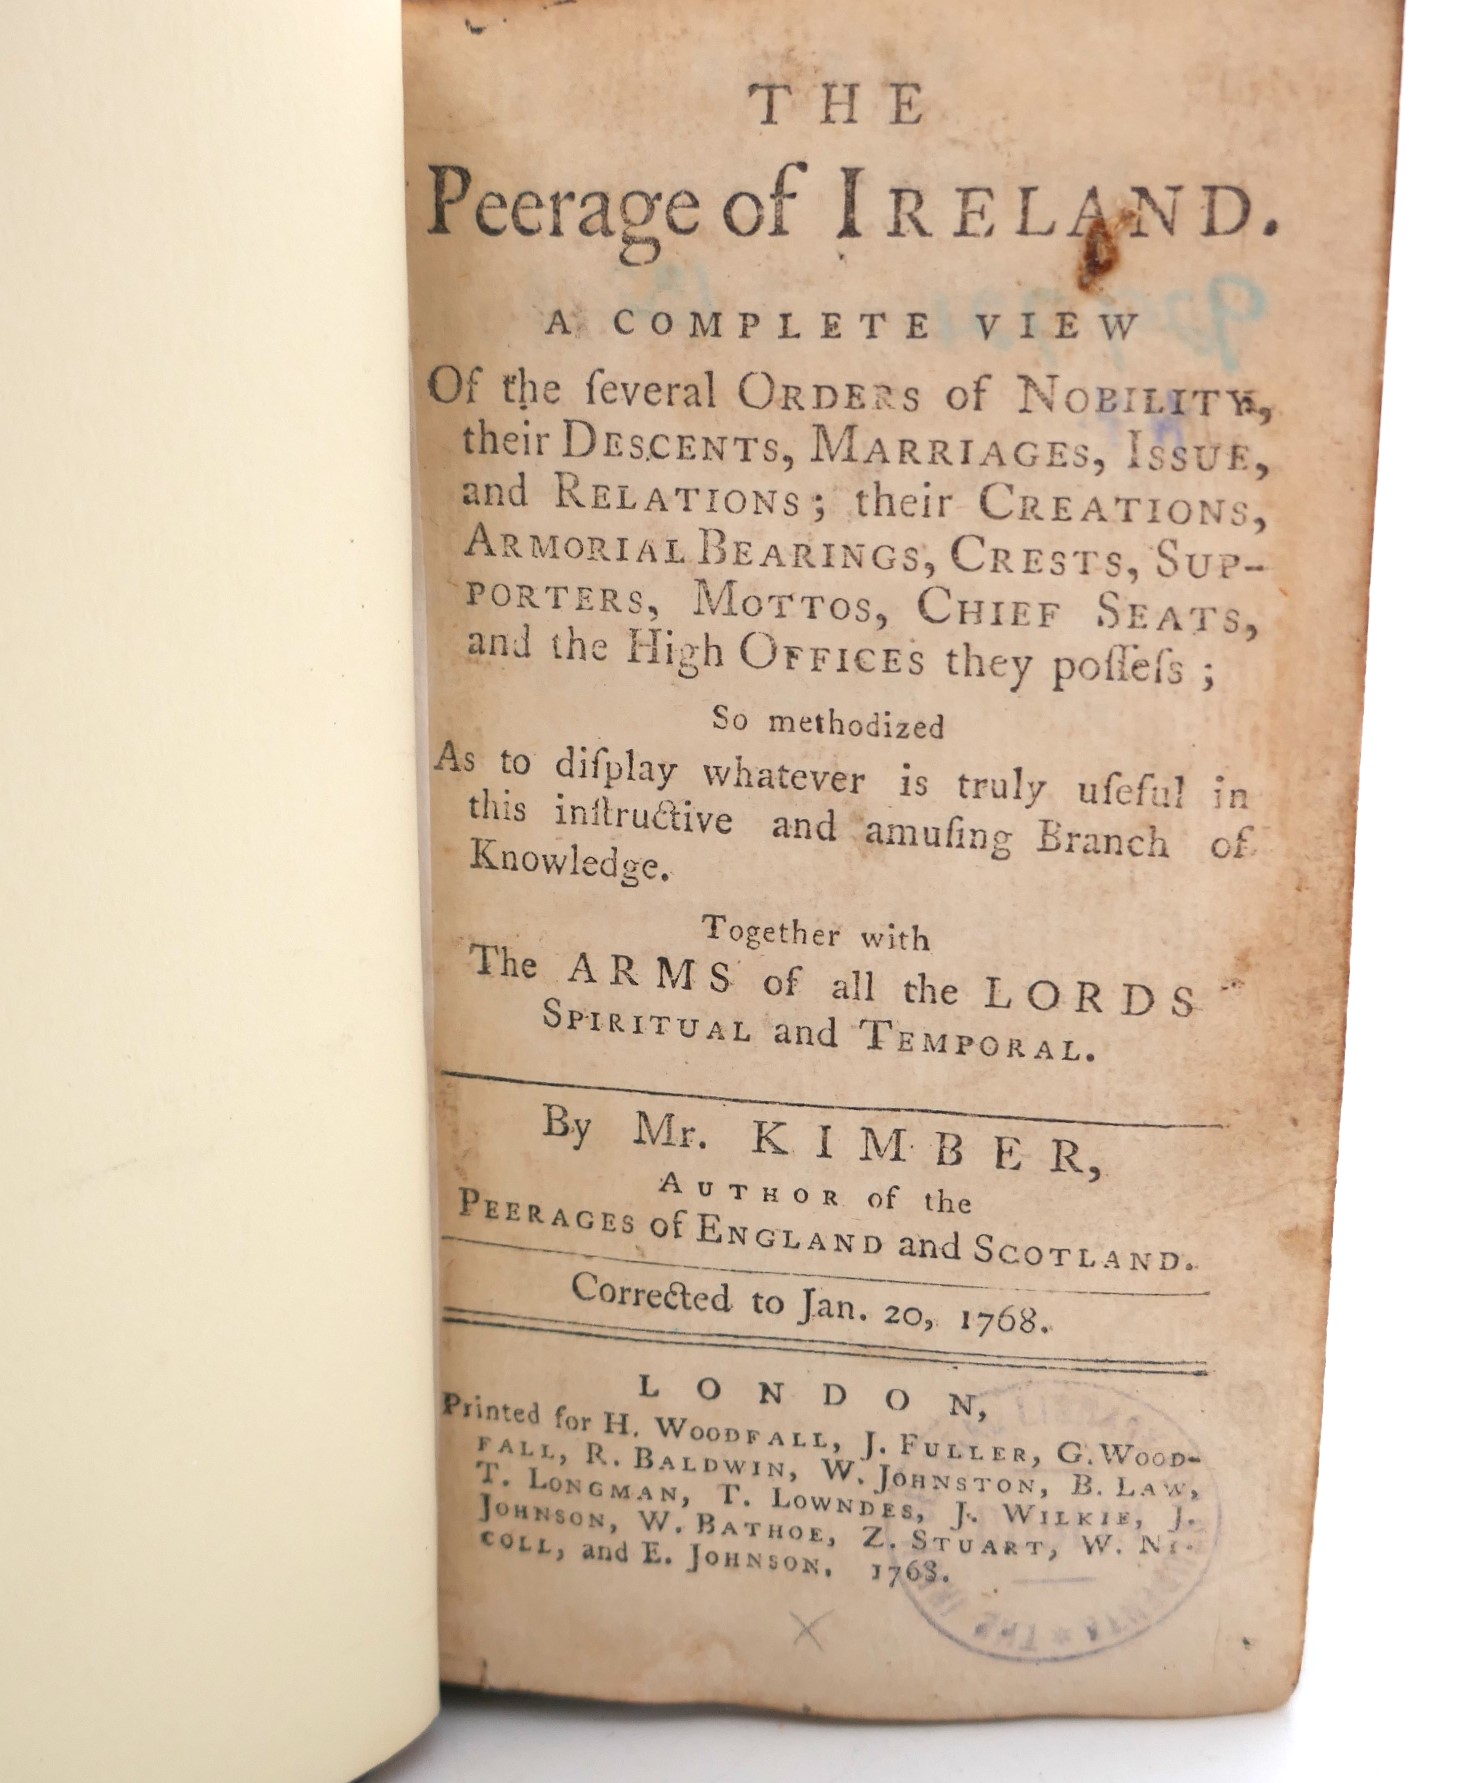 THE
Peerage of IRELAND.
A COMPLETE VIEW
Of the ſeveral ORDERS of NOBILITY,
their DESCENTS, MARRIAGES, ISSUE,
and RELATIONS; their CREATIONS,
ARMORIAL BEARINGS, CRESTS, SUP-
PORTERS, MOTTOS, CHIEF SEATS,
and the High OFFICES they poſſeſs;
So methodized
As to diſplay whatever is truly uſeful in
this inſtructive and amuſing Branch of
Knowledge.
Together with
The ARMS of all the LORDS
SPIRITUAL and TEMPORAL.
By Mr. KIMBER,
AUTHOR of the
PEERAGES of ENGLAND and SCOTLAND.
Corrected to Jan. 20, 1768.
LONDON,
Printed for H. WOODFALL, J. FULLER, G. WOOD-
FALL, R. BALDWIN, W. JOHNSTON, B. LAW,
T. LONGMAN, T. LOWNDES, J. WILKIE, J.
JOHNSON, W. BATHOE, Z. STUART, W. NI-
COLL, and E. JOHNSON. 1768.